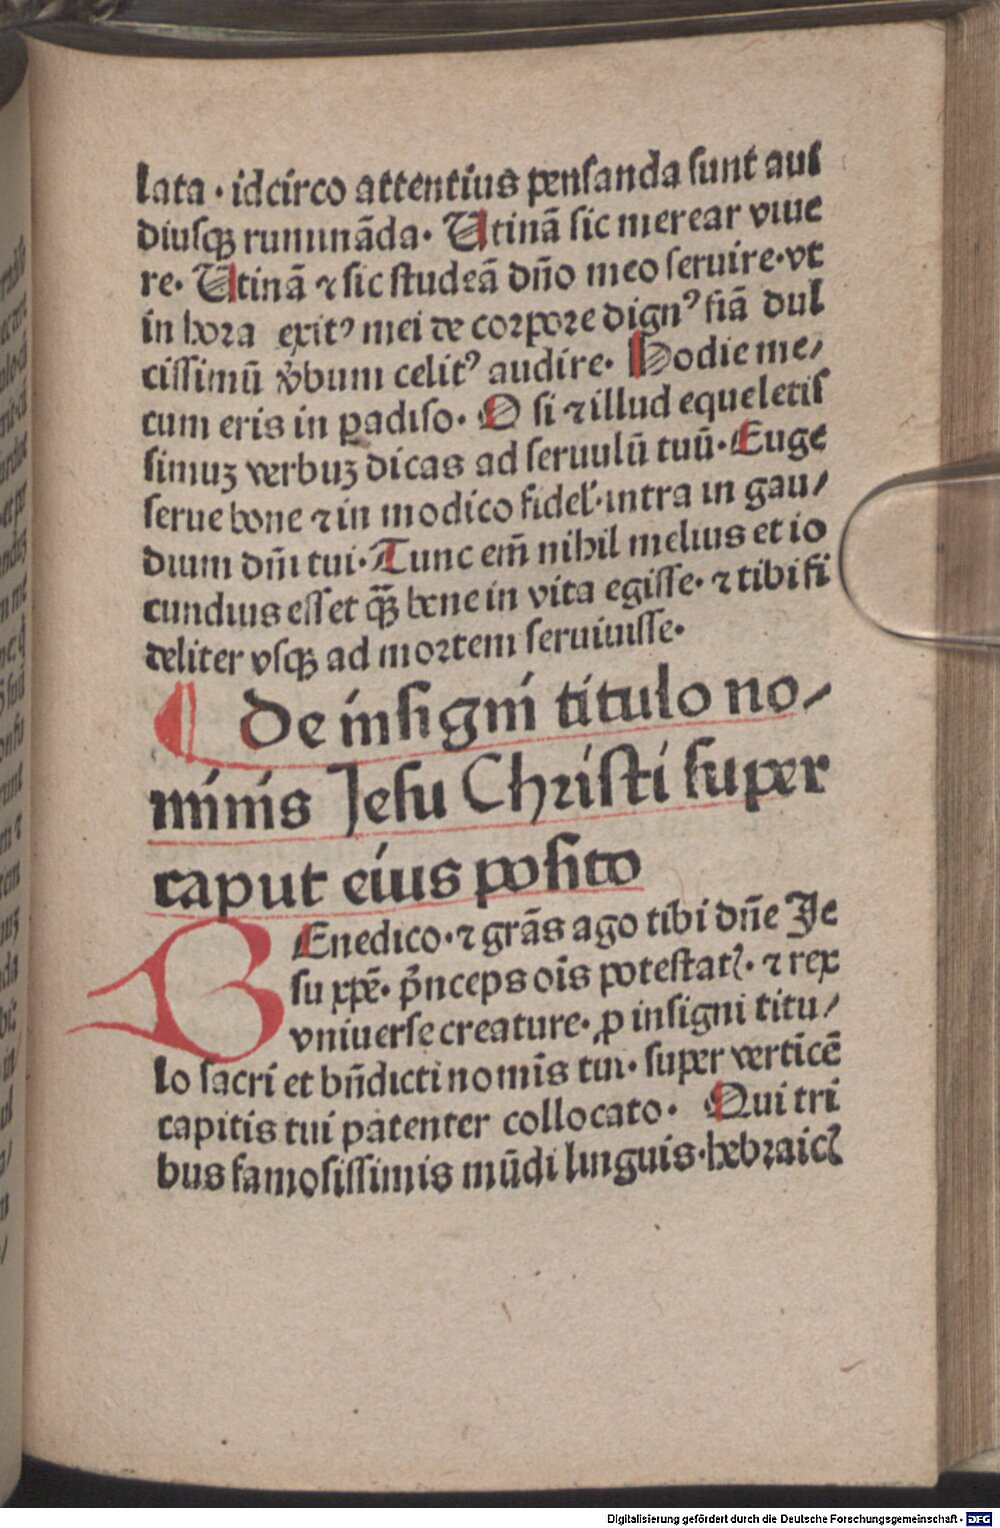 lata · idcirco attentius pensanda sunt aui
diusqꝫ ruminãda· Utinã sic merear viue
re· Utinã ⁊ sic studeã dño meo seruire·vt
in hora exitꝰ mei de corpore dignꝰ fiã dul
cissimũ v̾bum celitꝰ audire· Hodie me⸗
cum eris in ꝑadiso· O si ⁊ illud eque letis
simuꝫ verbuꝫ dicas ad seruulũ tuũ· Euge
serue bone ⁊ in modico fidel̕·intra in gau⸗
dium dñi tui· Tunc em̃ nihil melius et io
cundius esset qꝫ̃ bene in vita egisse· ⁊ tibi fi
deliter vsqꝫ ad mortem seruiuisse·
¶ De insigni titulo no⸗
minis Jesu Christi super
caput eius posito
BEnedico·⁊ grãs ago tibi dñe Je
su xp̃e· p̃nceps oĩs potestatꝭ· ⁊ rex
vniuerse creature· ꝓ insigni titu⸗
lo sacri et bñdicti nomĩs tui· super verticẽ
capitis tui patenter collocato· Qui tri
bus famosissimis mũdi linguis·hebraicꝭ
Digitalisierung gefördert durch die Deutsche Forschungsgemeinschaft · DFG